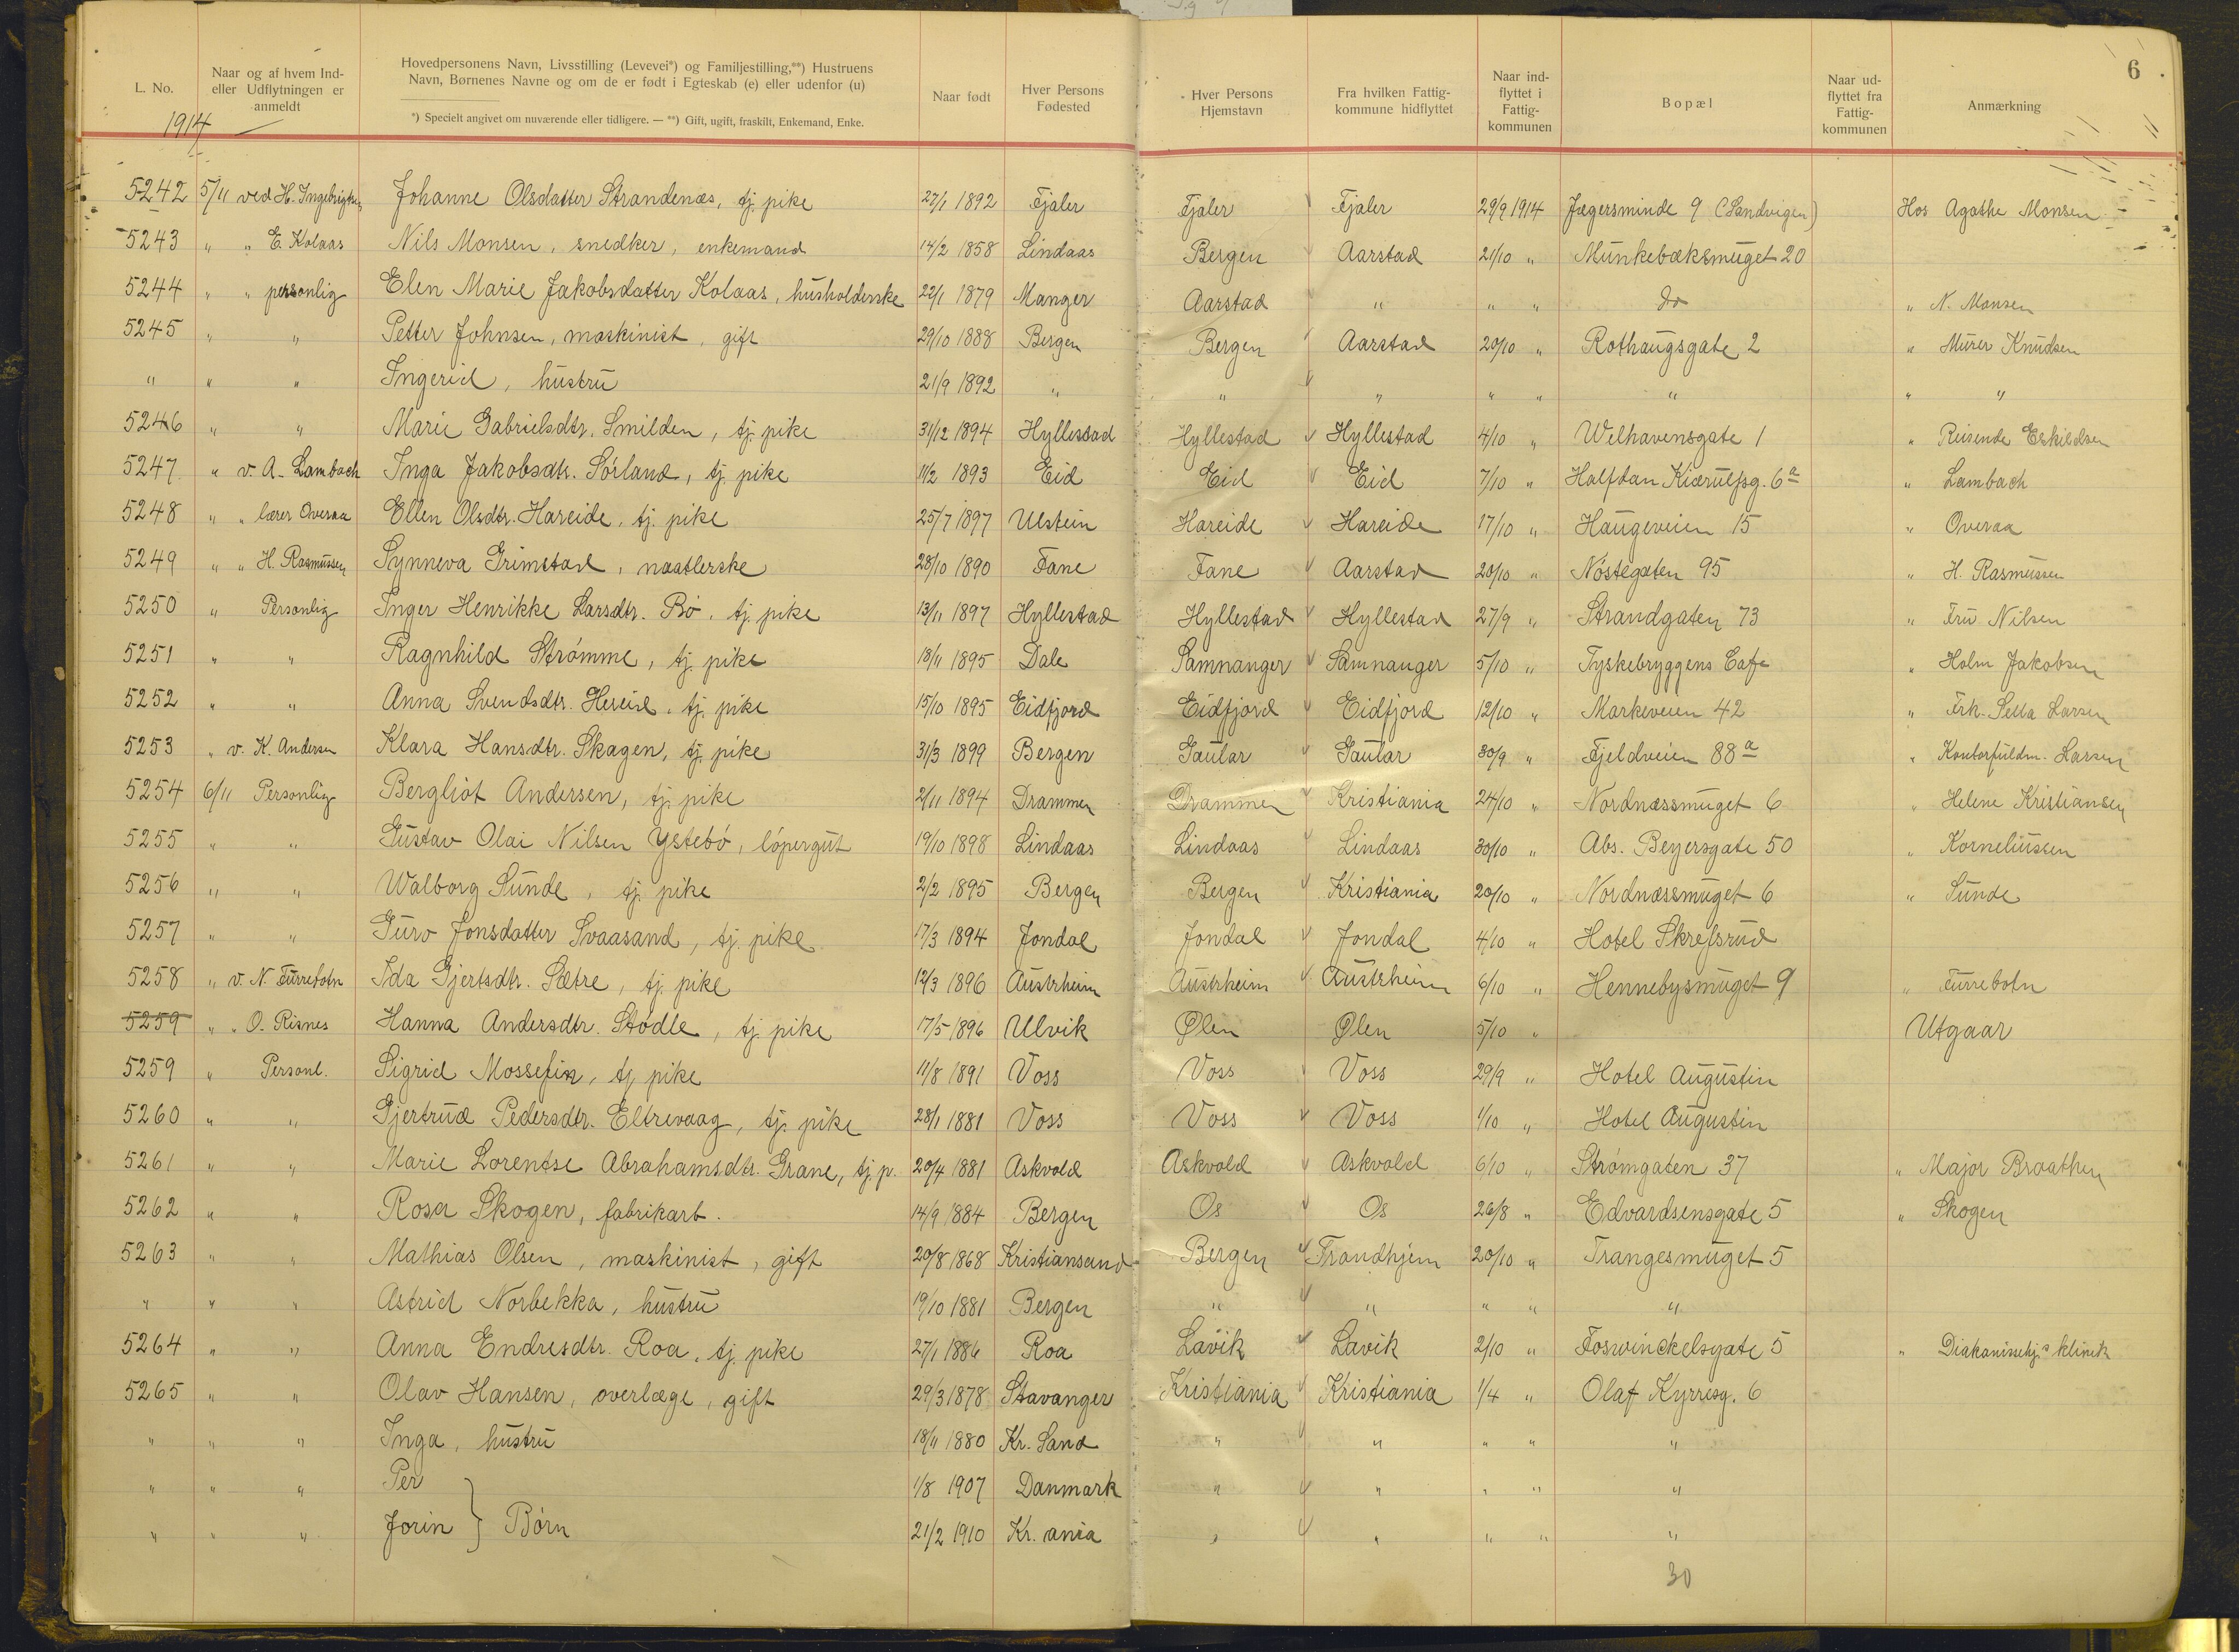 6
L. No.
Naar og af hvem Ind- eller Udflytningen er anmeldt
Hovedpersonens Navn, Livsstilling (Levevei*) og Familjestilling,**) Hustruens Navn, Børnenes Navne og om de er født i Egteskab (e) eller udenfor (u)
*) Specielt angivet om nuværende eller tidligere. — **) Gift, ugift, fraskilt, Enkemand, Enke.
Naar født
Hver Persons Fødested
Hver Persons Hjemstavn
Fra hvilken Fattigkommune hidflyttet
Naar indflyttet i Fattigkommunen
Bopæl
Naar udflyttet fra Fattigkommunen
Anmærkning
1914
5242 5/11 ved H. Ingebrigtsen Johanne Olsdatter Strandenæs, tj. pike 27/1 1892 Fjaler Fjaler Fjaler 29/9 1914 Jægersminde 9 (Sandvigen) Hos Agathe Monsen
5243 " " E. Kolaas Nils Monsen, snedker, enkemand 14/2 1858 Lindaas Bergen Aarstad 21/10 " Munkebæksmuget 20
5244 " " personlig Elen Marie Jakobsdatter Kolaas, husholderske 22/1 1879 Manger Aarstad " " " do " N. Monsen
5245 " " Petter Johnsen, maskinist, gift 29/10 1888 Bergen Bergen Aarstad 20/10 " Rothaugsgate 2 " Murer Knudsen
" " " Ingerid, hustru 21/9 1892 " " " " " " " "
5246 " " Marie Gabrielsdtr. Smilden, tj. pike 31/12 1894 Hyllestad Hyllestad Hyllestad 4/10 " Welhavensgate 1 " Reisende Eskildsen
5247 " v. A. Lambach Inga Jakobsdtr. Sørland, tj. pike 11/2 1893 Eid Eid Eid 7/10 " Halfdan Kiærulfsg. 6a " Lambach
5248 " " lærer Overaa Ellen Olsdtr. Hareide, tj. pike 25/7 1897 Ulstein Hareide Hareide 17/10 " Haugeveien 15 " Overaa
5249 " " H. Rasmussen Synneva Grimstad, naatlerske 28/10 1890 Fane Fane Aarstad 20/10 " Nøstegaten 95 " H. Rasmussen
5250 " Personlig Inger Henrikke Larsdtr. Bø, tj. pike 13/11 1897 Hyllestad Hyllestad Hyllestad 27/9 " Strandgaten 73 " Fru Nilsen
5251 " " Ragnhild Strømme, tj. pike 18/11 1895 Dale Samnanger Samnanger 5/10 " Tyskebryggens Cafe " Holm Jakobsen
5252 " " Anna Svendsdtr. Hereid, tj. pike 15/10 1895 Eidfjord Eidfjord Eidfjord 12/10 " Markeveien 42 " Frk. Larsen
5253 " v. K. Andersen Klara Hansdtr. Skagen, tj. pike 31/3 1899 Bergen Gaular Gaular 30/9 " Fjeldveien 88a " Kontorfuldm. Larsen
5254 6/11 Personlig Bergliot Andersen, tj. pike 2/11 1894 Drammen Drammen Kristiania 24/10 " Nordnæssmuget 6 " Helene Kristiansen
5255 " " Gustav Olai Nilsen Ystebø, løpergut 19/10 1898 Lindaas Lindaas Lindaas 30/10 " Abs. Beyersgate 50 " Korneliussen
5256 " " Walborg Sunde, tj. pike 2/2 1895 Bergen Bergen Kristiania 20/10 " Nordnæssmuget 6 " Sunde
5257 " " Guro Jonsdatter Svaasand, tj. pike 17/3 1894 Jondal Jondal Jondal 4/10 " Hotel Skrefsrud
5258 " v. N. Furrebotn Ida Gjertsdtr. Sætre, tj. pike 12/3 1896 Austrheim Austrheim Austrheim 6/10 " Hennebysmuget 9 " Furrebotn
5259 " " O. Risnes Hanna Andersdtr. Stødle, tj. pike 17/5 1896 Ulvik Ølen Ølen 5/10 " Utgaar
5259 " Personl. Sigrid Mossefin, tj. pike 11/8 1891 Voss Voss Voss 29/9 " Hotel Augustin
5260 " " Gjertrud Pedersdtr. Eltrevaag, tj. pike 28/1 1881 Voss Voss Voss 1/10 " Hotel Augustin
5261 " " Marie Lorentse Abrahamsdtr. Grane, tj. p. 20/4 1881 Askvold Askvold Askvold 6/10 " Strømgaten 37 " Major Braathen
5262 " " Rosa Skogen, fabrikarb. 14/9 1884 Bergen Os Os 26/8 " Edvardsensgate 5 " Skogen
5263 " " Mathias Olsen, maskinist, gift 20/8 1868 Kristiansand Bergen Trondhjem 20/10 " Trangesmuget 5
" " " Astrid Norbekka, hustru 19/10 1881 Bergen " " " " "
5264 " " Anna Endresdtr. Roa, tj. pike 27/1 1886 Roa Lavik Lavik 2/10 " Foswinckelsgate 5 " Diakonissehj.s klinik
5265 " " Olav Hansen, overlæge, gift 29/3 1878 Stavanger Kristiania Kristiania 1/4 " Olaf Kyrresg. 6
" " " Inga, hustru 18/11 1880 Kr. Sand " " " " "
" " " Per 1/8 1907 Danmark " " " " "
" " " Jorin } Børn 21/2 1910 Kr. ania " " " " "
30